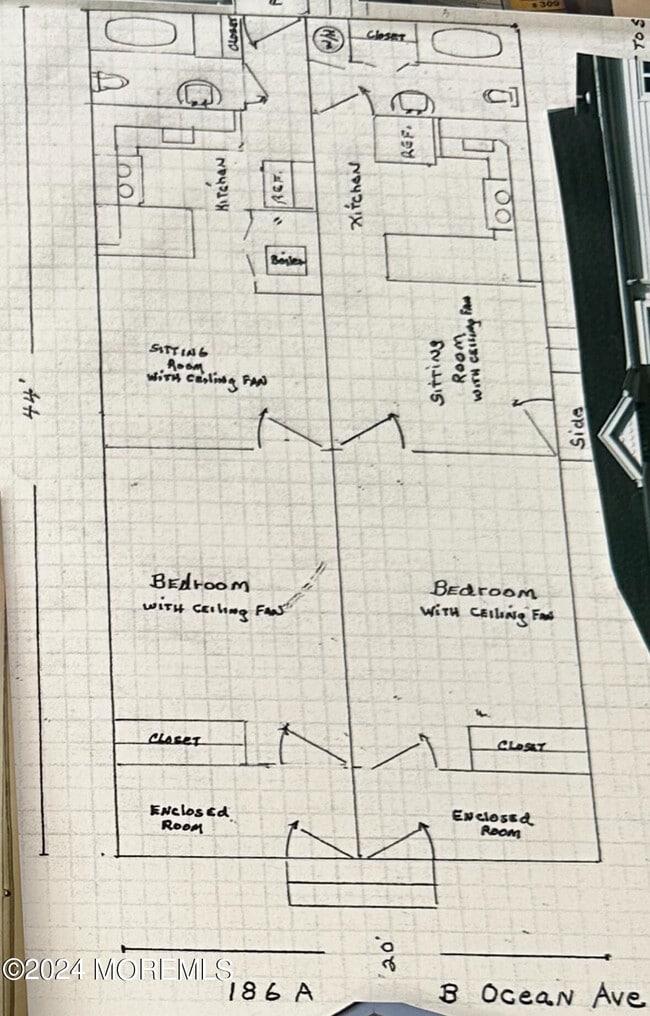 $309
TO S
CLOSET
W/H
CLOSET
KITCHEN
REF.
KITCHEN
REF.
Boiler
SITTING
ROOM
WITH CEILING FAN
SITTING
ROOM
WITH CEILING FAN
44'
Side
BEdroom
WITH CEILING FAN
BEdroom
WITH CEILING FAN
CLOSET
CLOSET
ENclosed
ROOM
ENclosed
ROOM
20'
©2024 MOREMLS
186 A B OCEAN AVE